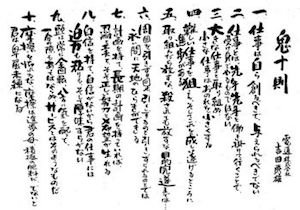 鬼十則
電通株式会社
吉田秀雄
一 仕事は自ら創るべきで 与えられるべきでない
二 仕事とは 先手先手と働き掛けて行くことで
受け身でやるものではない
三 大きな仕事と取り組め
小さな仕事は己れを小さくする
四 難しい仕事を狙え そして之を成し遂げるところに
進歩がある
五 取組んだら放すな 殺されても放すな 目的完遂までは
六 周囲を引き摺り廻せ 引き摺るのと引き摺られるのとでは
永い間に天地のひらきができる
七 計画を持て 長期の計画を持っていれば
忍耐と工夫と そして正しい努力と希望が生れる
八 自信を持て 自信がないから君の仕事には
迫力も粘りも そして厚味すらがない
九 頭は常に全回転 八方に気を配って
一分の隙もあってはならぬ サービスとはそのようなものだ
十 摩擦を怖れるな 摩擦は進歩の母 積極の肥料だ でないと
君は卑屈未練になる